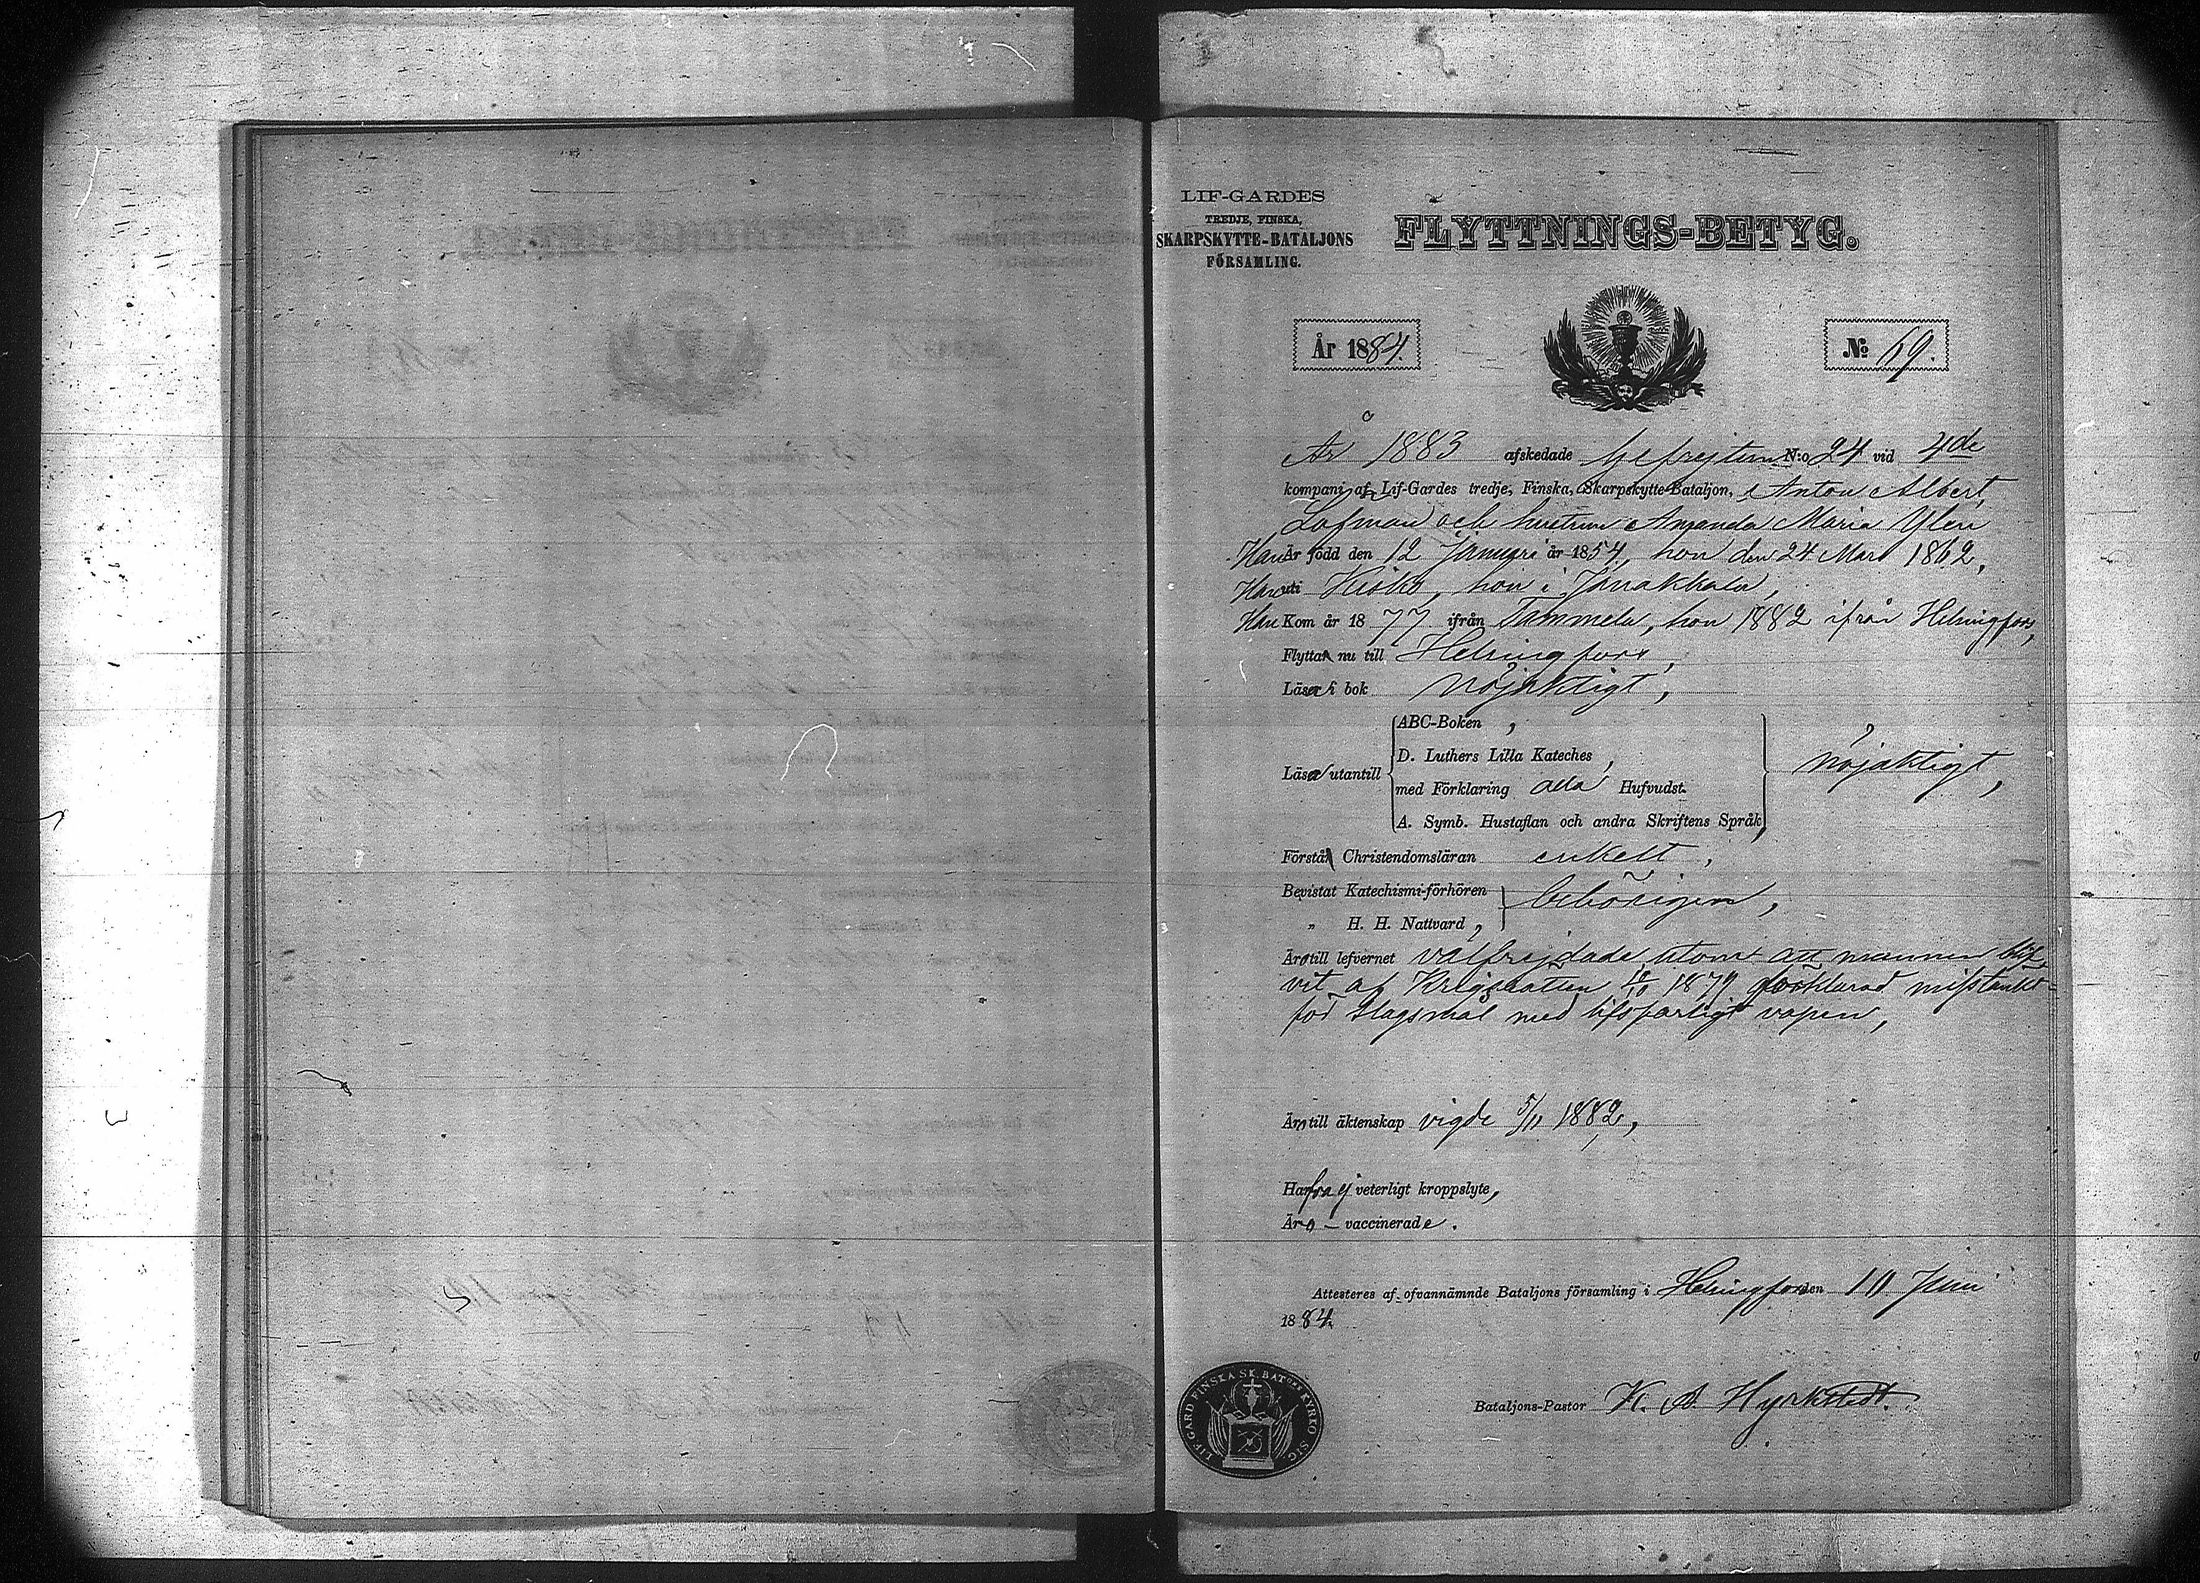 LIF-GARDES
TREDJE, FINSKA,
SKARPSKYTTE-BATALJONS
FÖRSAMLING.
FLYTTNINGS-BETYG.
År 1884.
№ 69.
År 1883 afskedade Gefrejtern N:o 24 vid 4de
kompani af Lif-Gardes tredje, Finska, Skarpskytte-Bataljon, Anton Albert
Löfman och hustrun Amanda Maria Ylen
Han Är född den 12 Januari år 1854, hon den 24 Mars 1862,
Han uti Kisko, hon i Janakkala,
Han Kom år 1877 ifrån Tammela, hon 1882 ifrån Helsingfors,
Flytta nu till Helsingfors,
Läsa i bok nöjaktigt,
ABC-Boken,
D. Luthers Lilla Kateches,
Läsa utantill
med Förklaring alla Hufvudst.
A. Symb. Hustaflan och andra Skriftens Språk,
nöjaktigt,
Förstå Christendomsläran enkelt,
Bevistat Katechismi-förhören
„ H. H. Nattvard,
behörigen,
Äro till lefvernet välfrejdade utom att mannen blif-
vit af Krigsrätten 1879 förklarad misstänkt
för slagsmål med lifsfarligt vapen,
Äro till äktenskap vigde 5/11 1882,
Hafva ej veterligt kroppslyte,
Äro – vaccinerade.
Attesteras af ofvannämnde Bataljons församling i Helsingfors den 10 Juni
1884.
Bataljons-Pastor K. A. Hyrkstedt.
LIF-GARD FINSKA SK. BATONS KYRKO SIG.